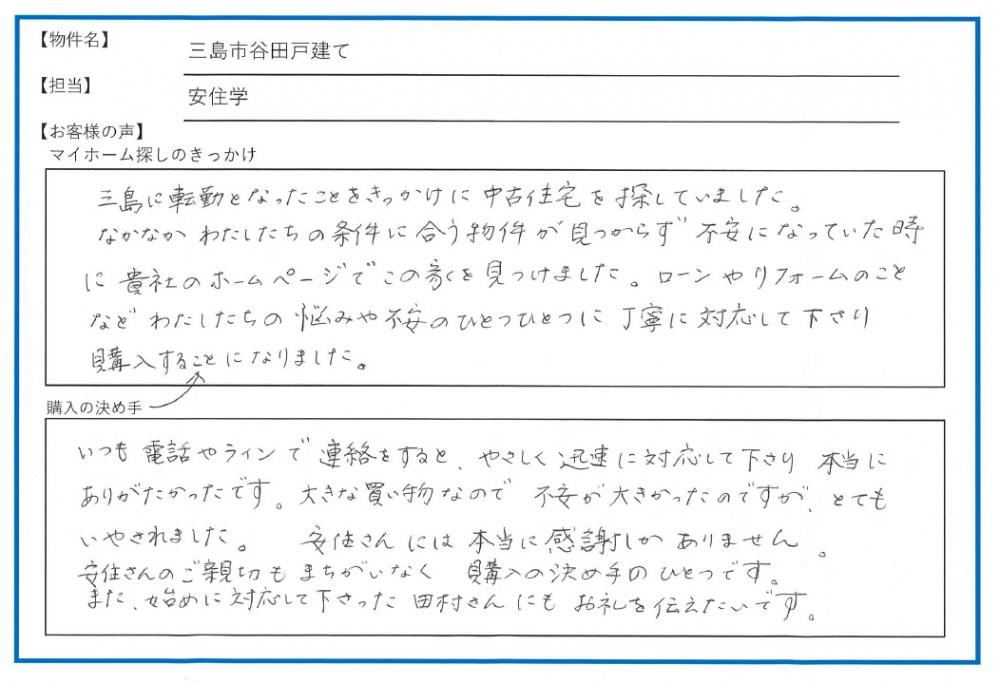 【物件名】
三島市谷田戸建て
【担当】
安住学
【お客様の声】
マイホーム探しのきっかけ
三島に転勤となったことをきっかけに中古住宅を探していました。
なかなかわたしたちの条件に合う物件が見つからず不安になっていた時
に貴社のホームページでこの家を見つけました。ローンやリフォームのこと
などわたしたちの悩みや不安のひとつひとつに丁寧に対応して下さり
購入することになりました。
購入の決め手
いつも電話やラインで連絡をすると、やさしく迅速に対応して下さり本当に
ありがたかったです。大きな買い物なので不安が大きかったのですが、とても
いやされました。安住さんには本当に感謝しかありません。
安住さんのご親切もまちがいなく購入の決め手のひとつです。
また、始めに対応して下さった田村さんにもお礼を伝えたいです。